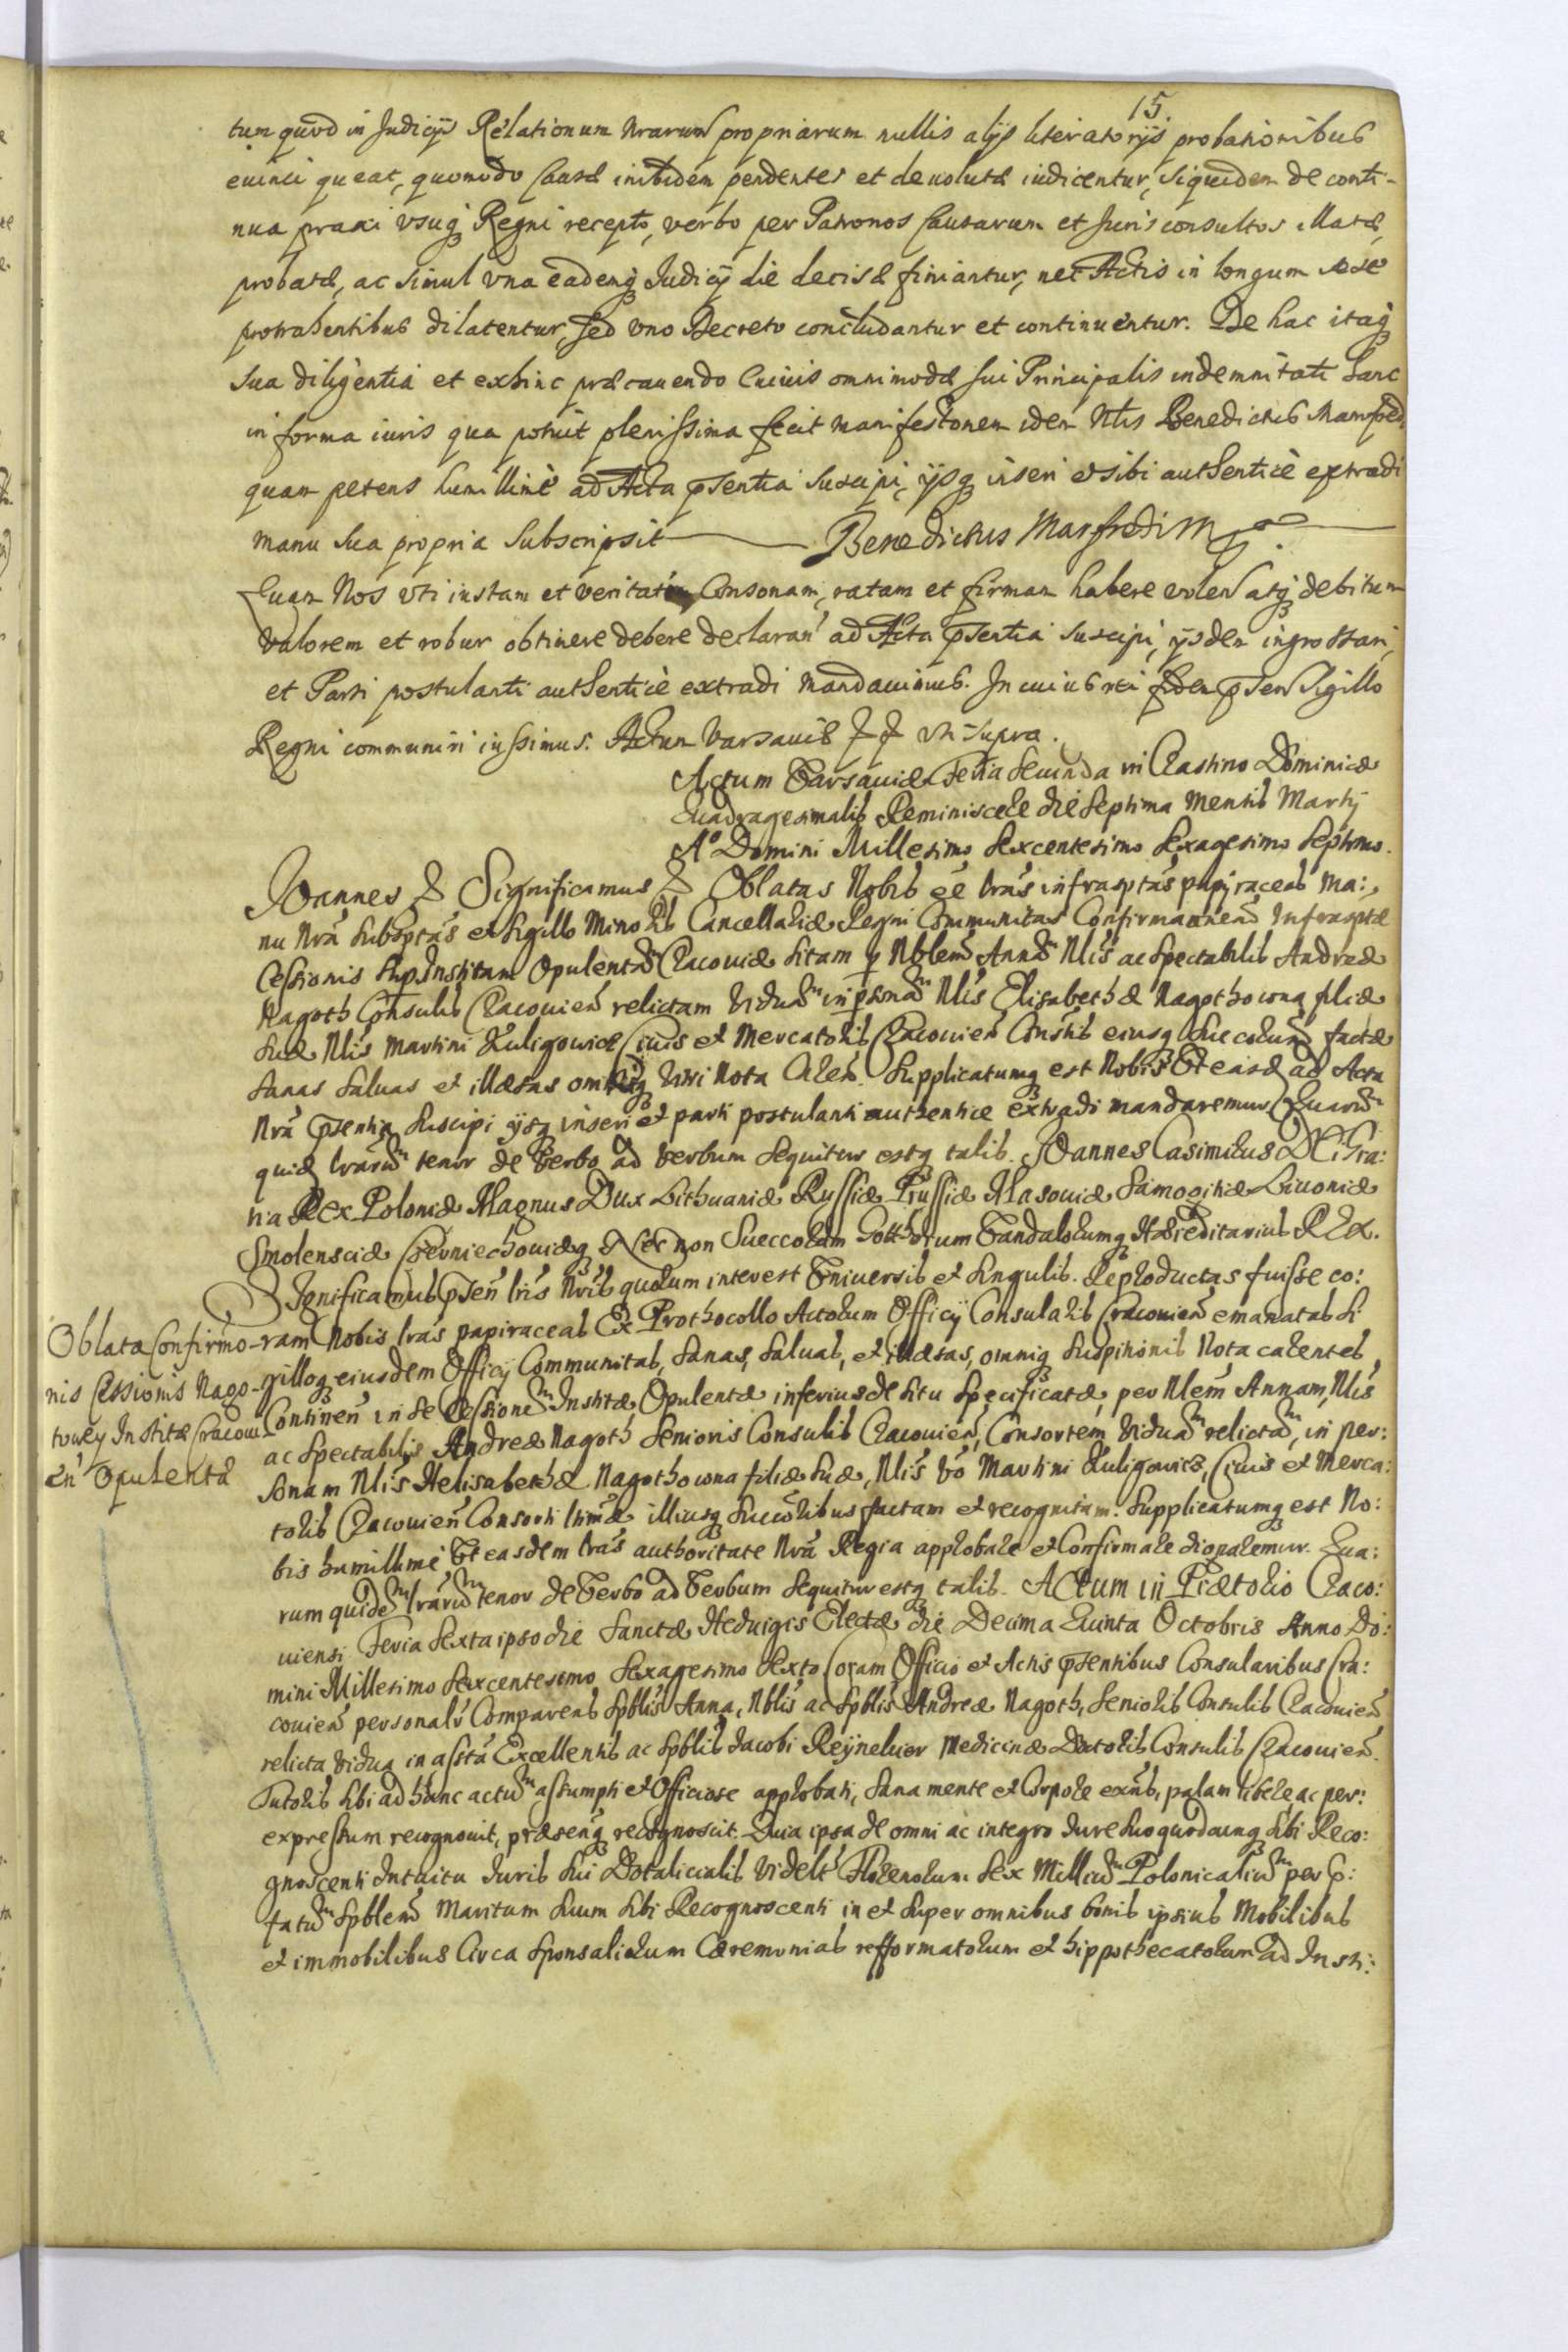 15.
tum quod in Judicijs Relationum Nrarum propriarum nullis alijs literatorijs probationibus
euinci queat, quomodo Causæ inibidem pendentes et deuolutæ iudicentur, siquidem de conti-
nua praxi vsuq Regni recepto, verbo per Patronos Causarum et Juris consultos illatæ,
probatæ, ac simul vna eademq Judicij die decisæ finiantur, nec Actis in longum
protrahentibus dilatentur, sed vno Decreto concludantur et continuentur. De hac itaq
sua diligentia et exhinc præcauendo Cuiuis omnimodæ sui Principalis indemnitati hanc
in forma iuris qua potuit plenissima fecit manifestonem idem Nlis Benedictus Manfredi,
quam petens humillimè ad Acta pñtentia suscipi, ijsq inseri et sibi authenticè extradi
manu sua propria subscripsit Benedictus Manfredi
Quam Nos vti iustam et veritati consonam, ratam et firmam habere volen atq debitum
valorem et robur obtinere debere declaran ad Acta psentia suscipi, ijsdem ingrossari,
et Parti postulanti authenticè extradi mandauimus. In cuius rei fidem psen Sigillo
Regni communiri iussimus. Actum Varsauiæ vti supra.
Actum Varsauiæ Feria Secunda in Crastino Dominicæ
Quadragesimalis Reminiscere die Septima Mensis Martij
Aº Domini Millesimo Sexcentesimo Sexagesimo Septimo.
Joannes Significamus Oblatas Nobis eê lras infrasptas papyraceas ma:
nu Nra subsptas et Sigillo Minoris Cancellariæ Regni Communitas Confirmãonem Infrasptæ
Cessionis Institam Opulentam Cracouiæ sitam p Nblem Annã Nlis ac Spectabilis Andreæ
Nagoth Consulis Cracouien relictam Viduam in psonam Nlis Elisabethæ Nagothowna filiæ
suæ Nlis Martini Kuligowicz Ciuis et Mercatoris Cracouien eiusq Succorum factæ
sanas saluas et illæsas omniq vitij nota Caren. Supplicatumq est Nobis Vt easd ad Acta
Nra psentia suscipi ijsq inseri et parti postulanti authentice extradi mandaremus Quarum
quid lrarum tenor de Verbo ad Verbum sequitur estq talis. Joannes Casimirus DEi Gra:
tia REx Poloniæ Magnus Dux Lithuaniæ Russiæ Prussiæ Masouiæ Samogitiæ Liuoniæ
Smolensciæ Czerniechouiæq Nec non Sueccorum Gotthorum Vandalorumq Hæreditarius REx.
Significamus psen lris Nris quorum interest Vniuersis et singulis. Reproductas fuisse co:
ram Nobis lras papiraceas Ex Prothocollo Actorum Officij Consularis Cracouien emanatas Si
gilloq eiusdem Officij Communitas, sanas, saluas, et illæsas, omniq suspitionis Nota carentes
Continen in se Cessionem Institæ Opulentæ inferius de situ specificatæ, per Nlem Annam, Nlis
ac Spectabilis Andreæ Nagoth Senioris Consulis Cracouien, Consortem Viduam relictam, in per:
sonam Nlis Helisabethæ Nagothowna filiæ suæ, Nlis vo Martini Kuligowicz, Ciuis et Merca:
toris Cracouien Consorti illiusq Succoribus factam et recognitam. Supplicatumq est No:
bis humillime Vt easdem lras authoritate Nra Regia approbare et Confirmare dignaremur. Qua:
rum quidem lrarum tenor de Verbo ad Verbum sequitur estq talis. ACtum in Prætorio Craco:
uiensi Feria Sexta ipso die Sanctæ Heduigis Electæ die Decima Quinta Octobris Anno Do:
mini Millesimo Sexcentesimo Sexagesimo Sexto Coram Officio et Actis psentibus Consularibus Cra:
couien personalr Comparens Spblis Anna, Nblis ac Spblis Andreæ Nagoth, Senioris Consulis Cracouien
relicta vidua in assta Excellentis ac Spblis Jacobi Medicinæ Doctoris Consulis Cracouien.
Tutoris sibi ad hunc actum assumpti et Officiose approbati, sana mente et Corpore exns, palam libere ac per:
expressum recognouit, præsenq recognoscit. Quia ipsa de omni ac integro Jure suo quodcunq sibi Reco:
gnoscenti Intuitu Juris sui Dotalicialis videlt Florenorum sex Millium Polonicalium per p:
fatum Spblem Maritum suum sibi Recognoscenti in et super omnibus bonis ipsius Mobilibus
et immobilibus Circa Sponsalicium Cæremonias refformatorum et hippothecatorum ad Insti:
Oblata Confirmo-
nis Cessionis Nago-
towey Institæ Cracoui-
en Opulentæ